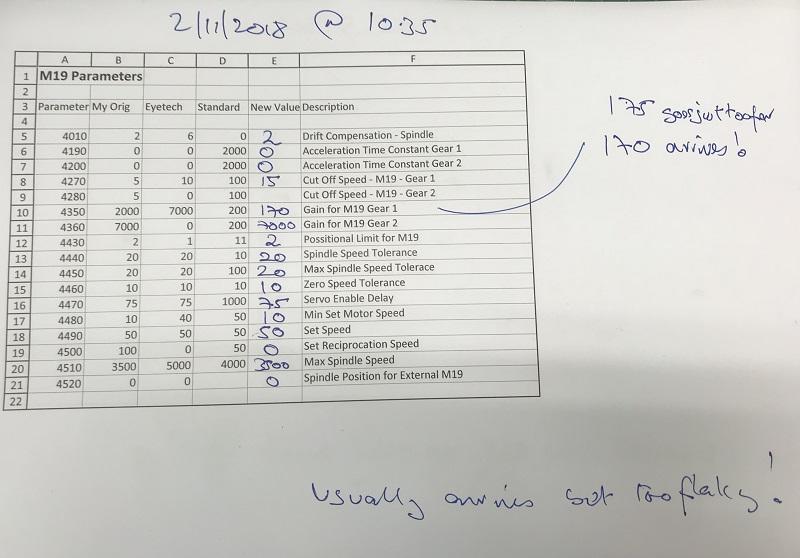 2/11/2018 @ 10:35
A B C D E F
1 M19 Parameters
2
3 Parameter My Orig Eyetech Standard New Value Description
4
5 4010 2 6 0 2 Drift Compensation - Spindle
6 4190 0 0 2000 0 Acceleration Time Constant Gear 1
7 4200 0 0 2000 0 Acceleration Time Constant Gear 2
8 4270 5 10 100 15 Cut Off Speed - M19 - Gear 1
9 4280 5 0 100 Cut Off Speed - M19 - Gear 2
10 4350 2000 7000 200 170 Gain for M19 Gear 1
11 4360 7000 0 200 7000 Gain for M19 Gear 2
12 4430 2 1 11 2 Possitional Limit for M19
13 4440 20 20 10 20 Spindle Speed Tolerance
14 4450 20 20 100 20 Max Spindle Speed Tolerace
15 4460 10 10 10 10 Zero Speed Tolerance
16 4470 75 75 1000 75 Servo Enable Delay
17 4480 10 40 50 10 Min Set Motor Speed
18 4490 50 50 50 50 Set Speed
19 4500 100 0 50 0 Set Reciprocation Speed
20 4510 3500 5000 4000 3500 Max Spindle Speed
21 4520 0 0 0 Spindle Position for External M19
22
175 goes just too far
170 arives!
Usually arrives but too flaky!